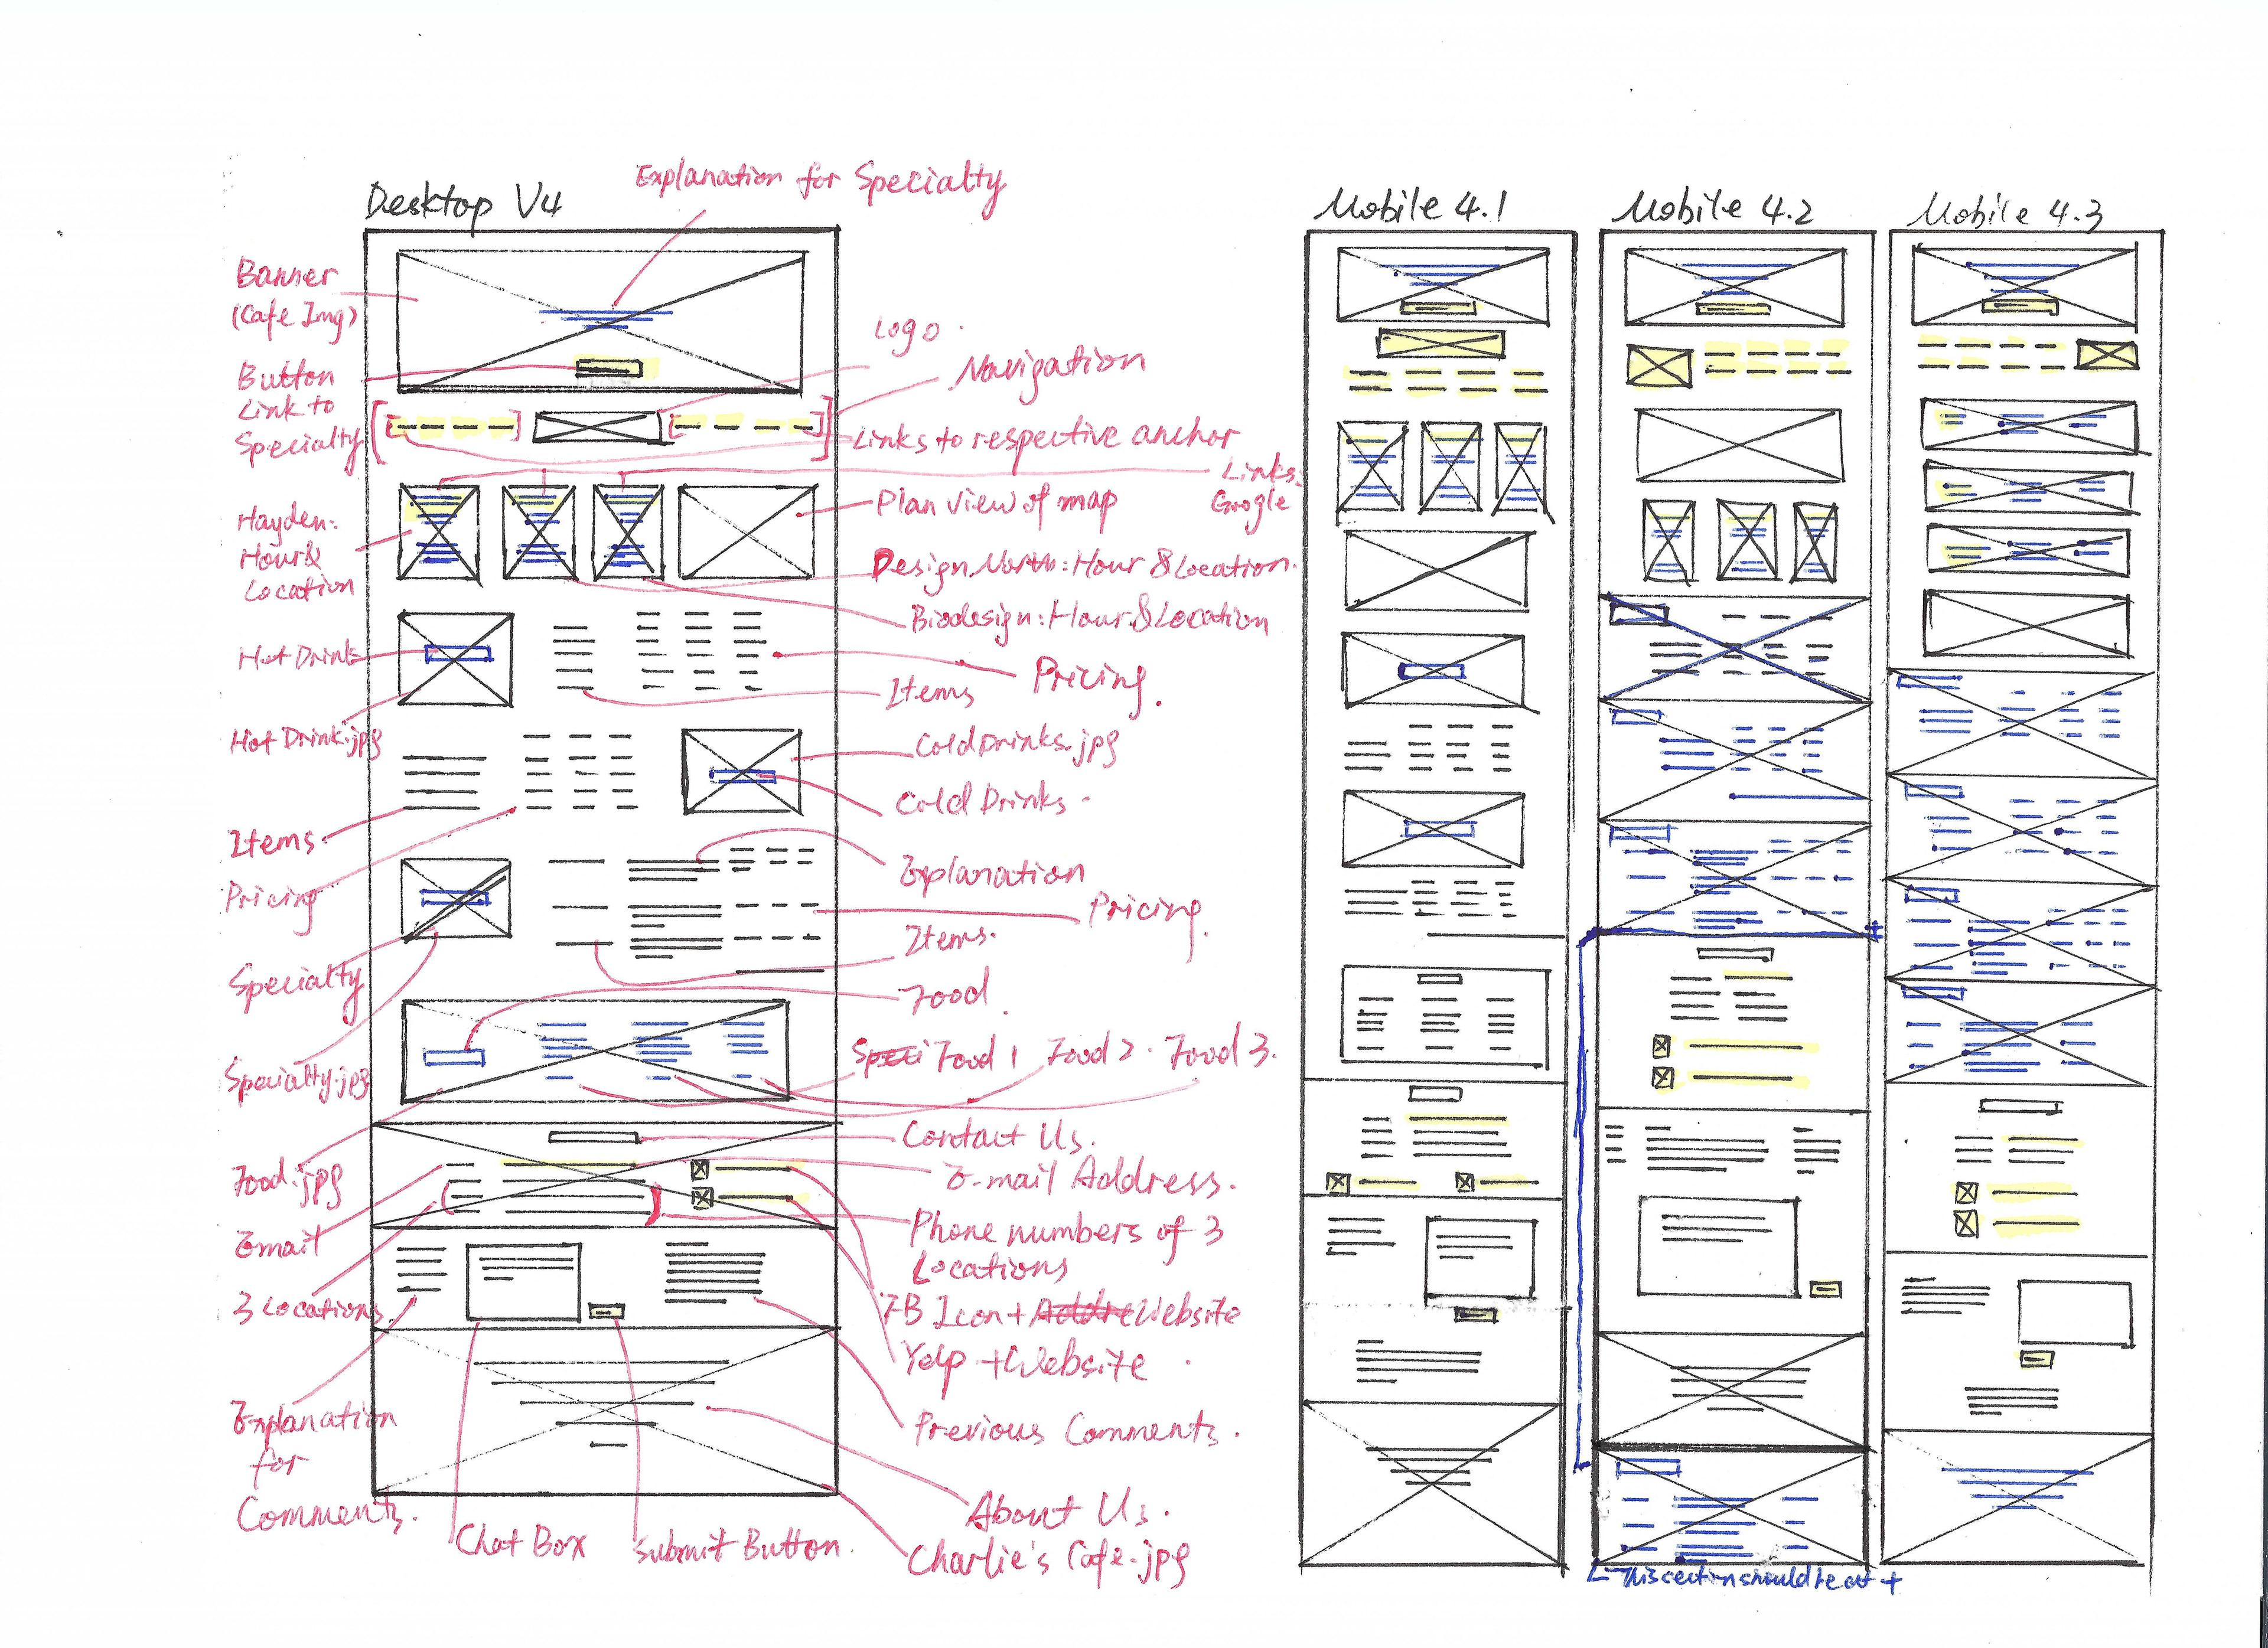 Desktop V4
Explanation for Specialty
Mobile 4.1
Mobile 4.2
Mobile 4.3
Banner
(Cafe Img)
Logo
Button
Link to
Specialty
Navigation
Links to respective anchor
Links:
Google
Plan view of map
Hayden:
Hour&
Location
Design North: Hour & Location.
Biodesign: Hour & Location
Hot Drinks
Pricing.
Items
Hot Drink.jpg
Cold Drinks.jpg
Cold Drinks.
Items.
Explanation
Pricing
Pricing.
Items.
Specialty
Food
Specialty.jpg
Speci Food 1 Food 2. Food 3.
Contact Us.
Food.jpg
E-mail Address.
Email
Phone numbers of 3
Locations
3 Locations
FB Icon + Addre Website
Yelp + Website
Explanation
for
Comments.
Previous Comments.
About Us.
Chat Box
Submit Button.
Charlie's Cafe.jpg
This section should be at +